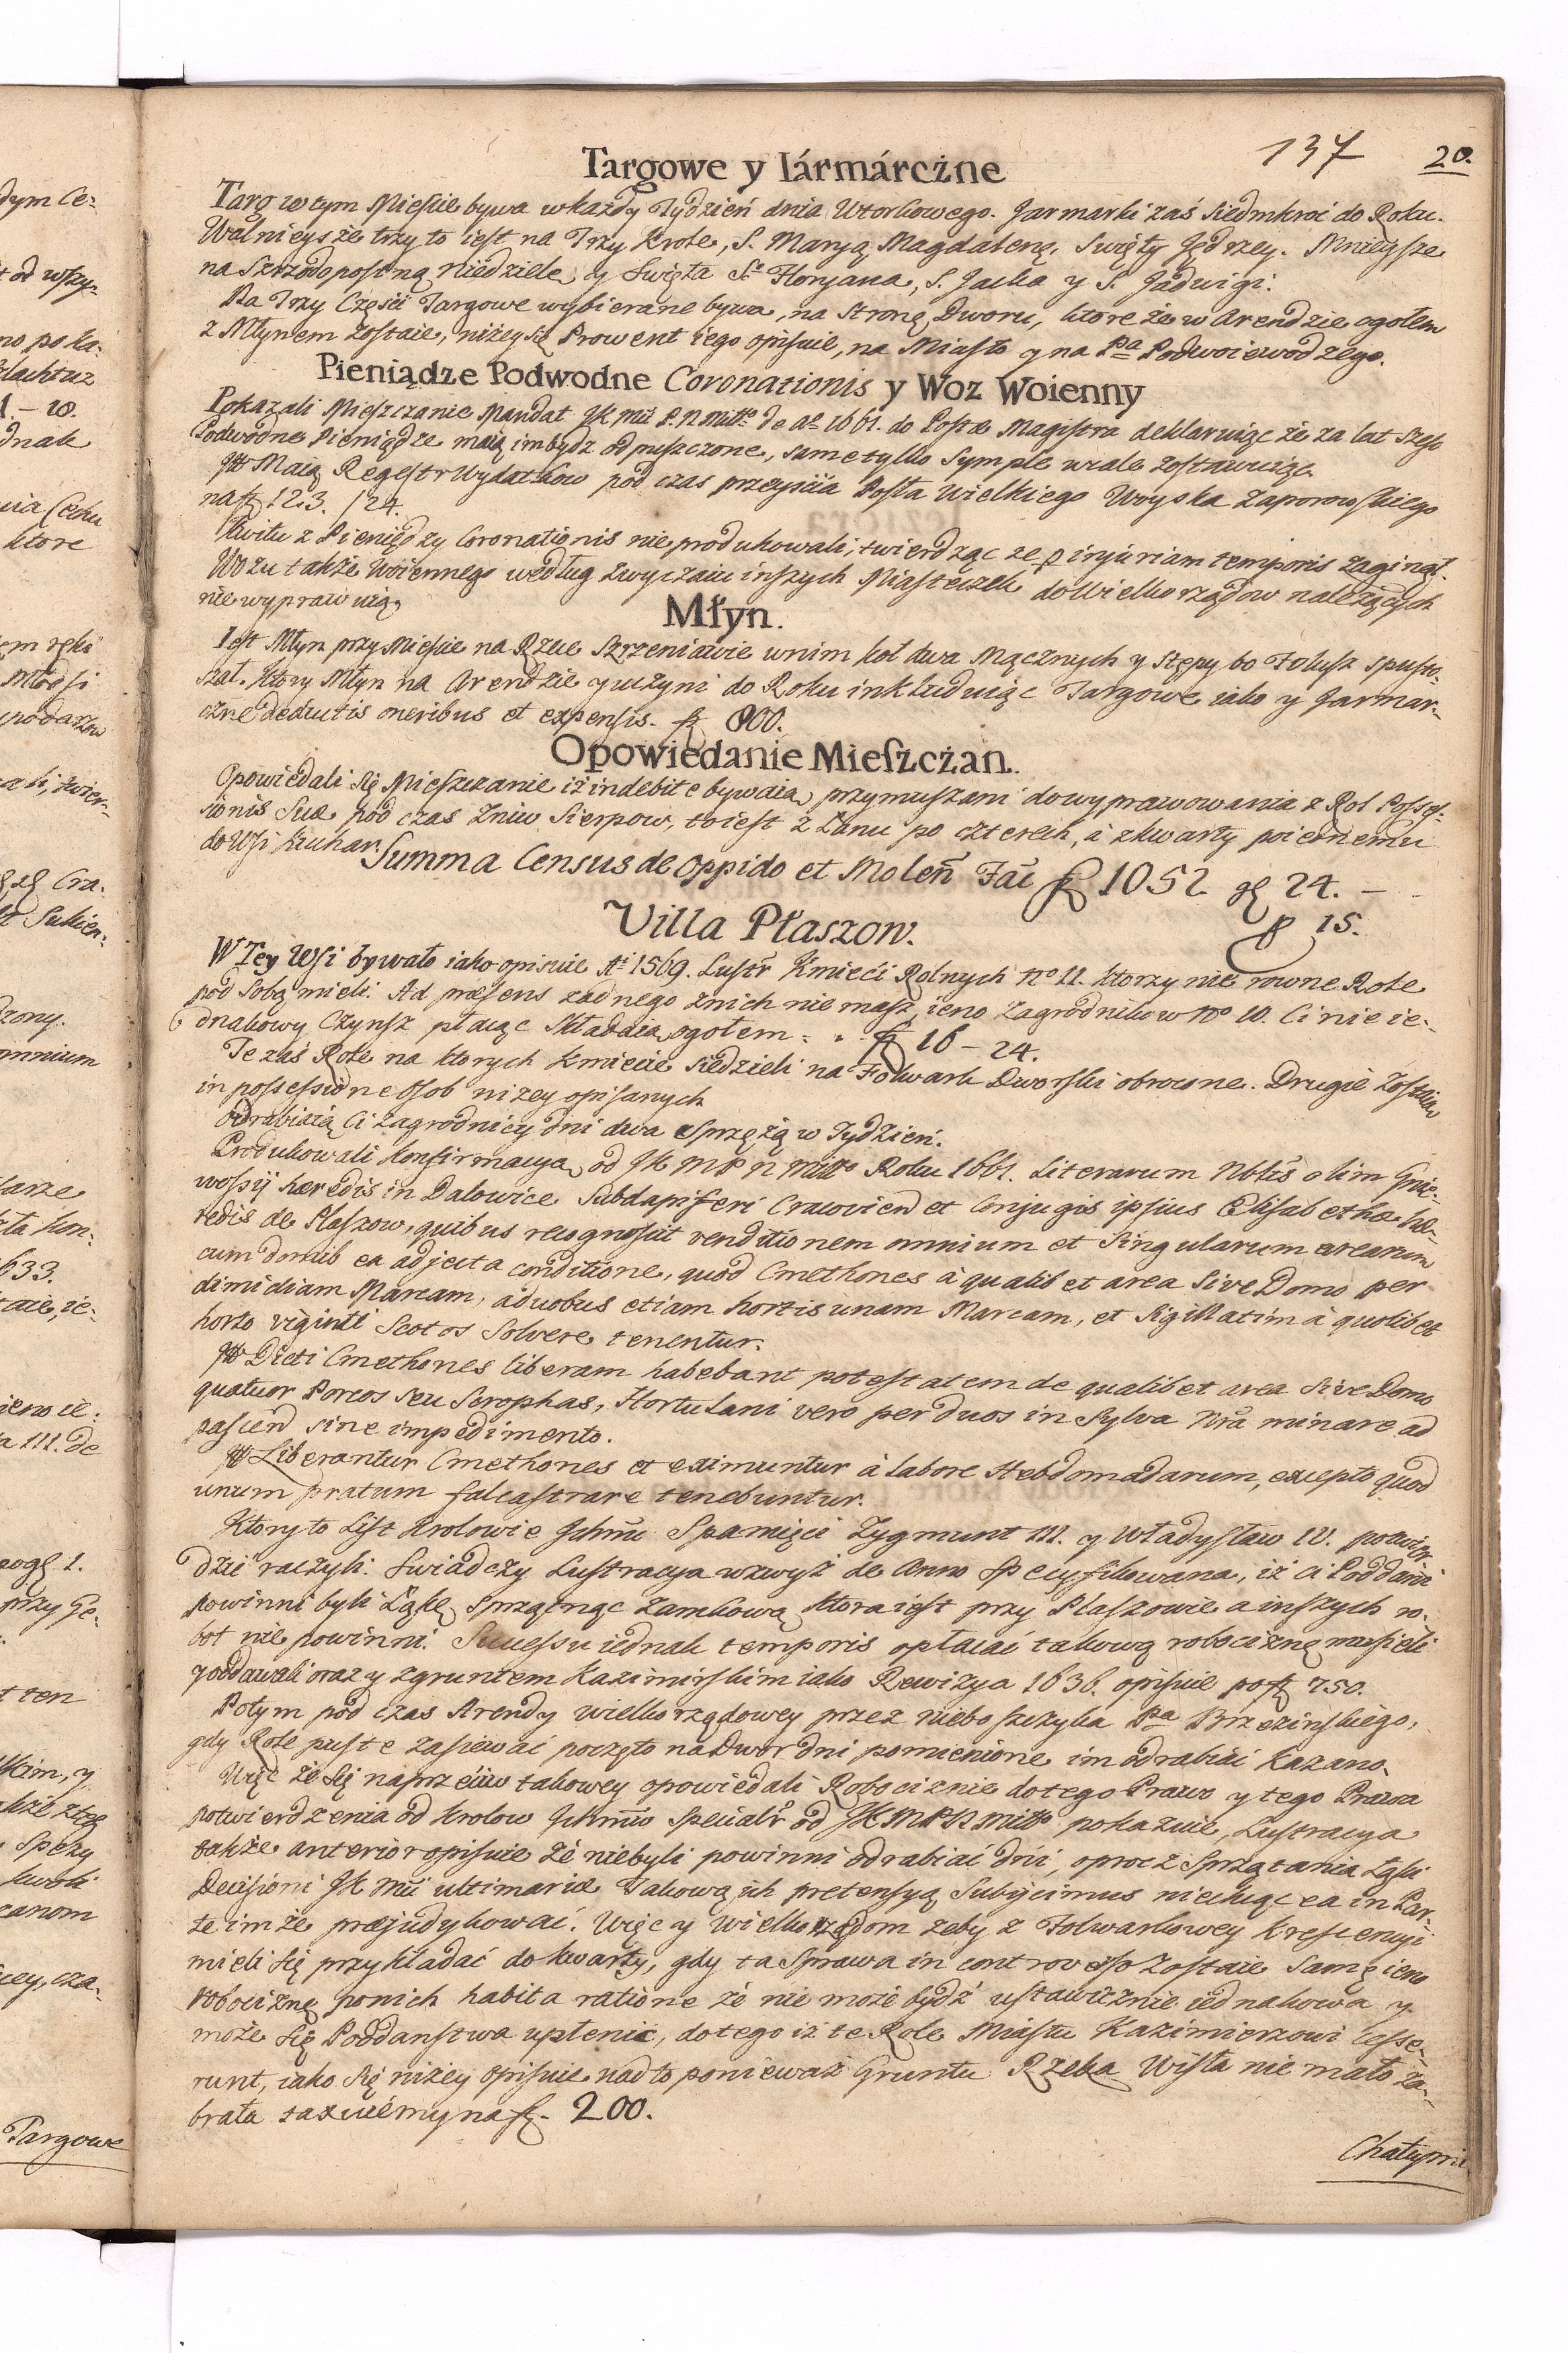 137 20.
Targowe y Iármárcżne
Targ wtym Mieście bywa w każdy Tydzień dnia Wtorkowego. Jarmarki zaś siedmkroć do Roku.
Walnieysze trzy to iest na Trzy Krole, S. Maryą Magdalenę, Swięty Jędrzey. Mnieysze
na Szrzodopostną Niedziele, y Swięta S° Floryana, S. Jacka y S. Jadwigi.
Na Trzy Części Targowe wybierane bywa, na Stronę Dworu, ktore że w Arendzie ogołem
z Młynem zostaie, niżey się Prowent iego opisuie, na Miasto y na Pa Podwoiewodzego.
Pieniądze Podwodne Coronationis y Woz Woienny
Pokazali Mieszczanie Mandat JK Mći P. N. Mttgo de Ao 1661. do Poſtæ Magistra deklaruiąc że za lat szeſć
Podwodne Pieniądze maią im bydź odpuszczone, same tylko Symple wcale zostawuiąc.
Itt Maią Regestr Wydatkow pod czas przeyścia Posła Wielkiego Woyska Zaporowskiego
na ƒ 123. / 24.
Kwitu z Pieniędzy Coronationis nie produkowali, twierdząc ze p injuriam temporis zaginął.
Wozu także Woiennego według zwyczaiu inszych Miasteczek do Wielkorządow należących
nie wyprawuią
Młyn.
Iest Młyn przy Mieście na Rzece Szrzeniawie w nim koł dwa Mącznych y Stępy bo Folusz spusto-
szał. Ktory Młyn na Arendzie y uczyni do Roku inkluduiąc Targowe iako y Jarmar-
czne deductis oneribus et expensis. ƒ 800.
Opowiedanie Mieſzcżan.
Opowiedali się Mieszczanie iż indebite bywaią przymuszani do wyprawowania z Rol Posses-
sionis Suæ pod czas Zniw Sierpow, to iest z Łanu po czterech, á z kwarty po iednemu
do Wsi Kuchar.
Summa Census de Oppido et Moleñ Faĉ ƒ 1052 gℓ 24. –
p 15.
Villa Płaszow.
W Tey Wsi bywało iako opisuie Ai 1569. Lustr Kmieći Rolnych No 11. ktorzy nie rowne Role
pod sobą mieli. Ad præsens żadnego z nich nie masz, ieno Zagrodnikow No 10. Ci nie ie-
dnakowy Czynsz płacąc składaią ogołem : ƒ 16 – 24.
Te zaś Role na ktorych Kmiecie siedzieli na Folwark Dworski obrocone. Drugie zostaią
in possessione Osob niżey opisanych
Odrabiaią Ci Zagrodnicy dni dwa sprzężą w Tydzień.
Produkowali Konfirmacyą od JK M P N Mttgo Roku 1661. Literarum Nbtis olim Gnie-
wossij hæredis in Dalowice Subdapiferi Cracovien et Conjugis ipsius Elisabethæ hæ-
redis de Płaszow, quibus recognoscit venditionem omnium et singularum arearum
cum domib ea adjecta conditione, quod Cmethones à qualibet area sive Domo per
dimidiam Marcam, à duobus etiam hortis unam Marcam, et sigillatim à quolibet
horto viginti Scotos solvere tenentur.
Itt Dicti Cmethones liberam habebant potestatem de qualibet area sive Domo
quatuor Porcos seu Scrophas, Hortulani vero per duos in Sylva Nrâ minare ad
pascend sine impedimento.
Itt Liberantur Cmethones et eximuntur à labore Hebdomadarum, excepto quod
unum pratum falcastrare tenebuntur.
Ktory to List Krolowie Jchmć S pamięci Zygmunt III. y Władysław IV. potwier-
dzić raczyli. Swiadczy Lustracya wzwyż de Anno specyfikowana, iż ci Poddani
powinni byli Łąkę sprzątnąć Zamkową ktora iest przy Płaszowie a inszych ro-
bot nie powinni. Successu iednak temporis opłacać takową robociznę musieli
y oddawali oraz y z gruntem Kazimirskim iako Rewizya 1636. opisuie po ƒ 750.
Potym pod czas Arendy wielkorządowey przez nieboszczyka Pa Brzezinskiego,
gdy Role puste zasiewać poczęto na Dwor dni pomienione im odrabiać kazano.
Więc że się naprzeciw takowey opowiedali Robociznie do tego Prawo y tego Prawa
potwierdzenia od Krolow Jchmćiow specialr od JK M P N Mttgo pokazuie, Lustracya
także anterior opisuie że niebyli powinni odrabiać dni, oprocz sprzątania Łąki
Decisioni JK Mći ultimariæ takową ich pretensyą subijcimus niechcąc ea in Par-
te im że præjudykować. Więc y Wielkorządom zeby z Folwarkowey Krescencyi
mieli się przykładać do kwarty, gdy ta Sprawa in controverso zostaie samę ieno
robociznę ponich habita ratione że nie może bydź ustawicznie iednakowa y
może się Poddanstwa uplenić, do tego iż te Role Miastu Kazimierzowi cesse-
runt, iako się niżey opisuie nadto ponieważ Gruntu Rzeka Wisła nie mało za-
brała taxuiemy na ƒ. 200.
Chałupni